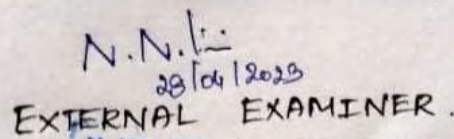 N.N.
28/04/2023
EXTERNAL EXAMINER.